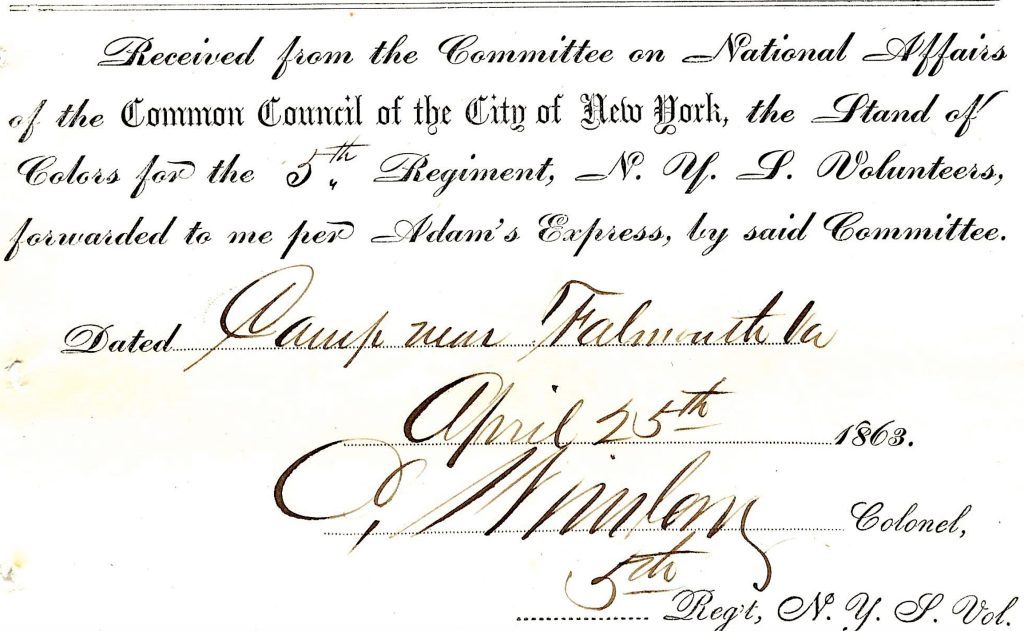 Received from the Committee on National Affairs
of the Common Council of the City of New York, the Stand of
Colors for the 5th Regiment, N. Y. S. Volunteers,
forwarded to me per Adam's Express, by said Committee.
Dated Camp near Falmouth Va
April 25th 1863.
C. Winslow Colonel,
5th Reg't, N. Y. S. Vol.